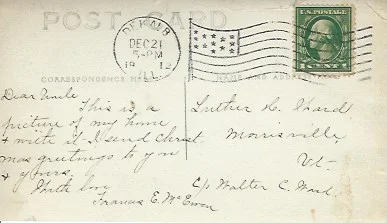 POST CARD
DE KALB
DEC 21
5-PM
19 12
ILL.
U.S. POSTAGE
CORRESPONDENCE HERE
NAME AND ADDRESS HERE
Dear Uncle
This is a
picture of my home
& with it I send Christ
mas greetings to you
& yours.
With love
Frances E. McEwen
Luther H. Ward
Morrisville,
Vt.
c/o Walter C. Ward.